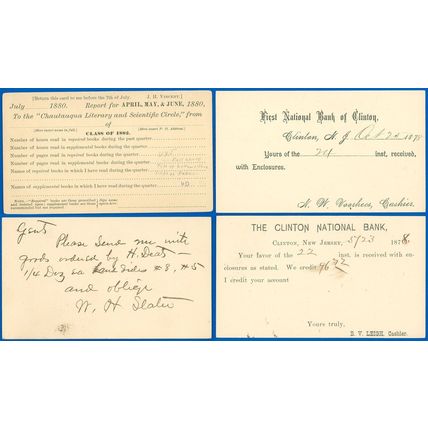 [Return this card to me before the 7th of July. J. H. VINCENT.]
July 1880. Report for APRIL, MAY, & JUNE, 1880,
To the "Chautauqua Literary and Scientific Circle," from
of
[Here insert name in full.] [Here insert P. O. Address.]
CLASS OF 1882.
Number of hours read in required books during the past quarter
Number of hours read in supplemental books during the quarter
Number of pages read in required books during the quarter
Number of pages read in supplemental books during the quarter
Names of required books in which I have read during the quarter
Names of supplemental books in which I have read during the quarter
First National Bank of Clinton,
Clinton, N. J. Oct 1878
Yours of the 21 inst. received,
with Enclosures.
N. W. Voorhees, Cashier.
Gents
Please send me with
goods ordered by H. Deats—
1/4 Doz ea Land sides #8, #5
and oblige
W. H. Slater
THE CLINTON NATIONAL BANK,
CLINTON, NEW JERSEY, 5/23 1878
Your favor of the 22 inst. is received with en-
closures as stated. We credit
I credit your account
Yours truly,
B. V. LEIGH, Cashier.